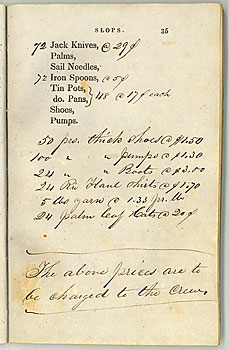 SLOPS. 35
72 Jack Knives, @ 29¢
Palms,
Sail Needles,
72 Iron Spoons, @ 5¢
Tin Pots,
do. Pans, } 48 @ 17¢ each
Shoes,
Pumps.
50 prs. thick Shoes @ $1.50
100 " " Pumps @ $1.30
24 " " Boots @ $3.00
24 Flanl Shirts @ $1.70
5 lbs yarn @ 1.33 pr. lb
24 Palm leaf Hats @ 20¢
The above prices are to
be charged to the Crew.